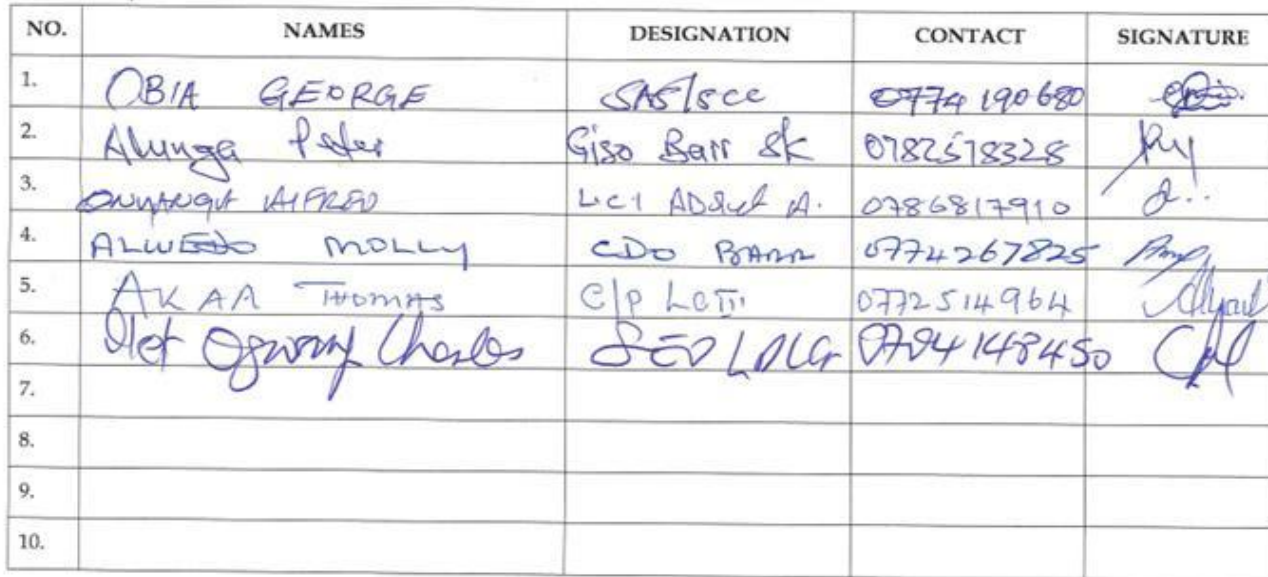 NO. NAMES DESIGNATION CONTACT SIGNATURE
1. OBIA GEORGE SAS/SCC 0774 190680
2. Alunga Peter Giso Barr SK 0782578328
3. ONYANGA ALFRED LC1 A. 0786817910
4. ALWEDO MOLLY CDO BARR 0774267825
5. AKAA THOMAS C/P LCIII 0772514964
6. Charles SEO LDLG
7.
8.
9.
10.